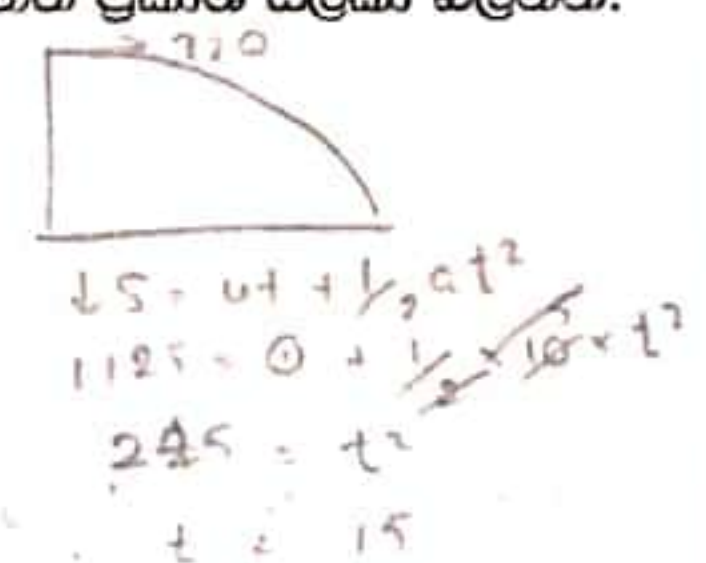 720
↓ S = ut + 1/2 at²
1125 = 0 + 1/2 × 10 × t²
225 = t²
t = 15